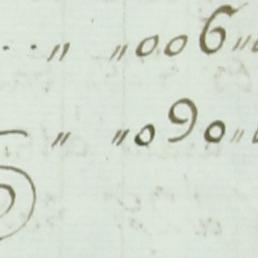 .. „ „ 006 „
„ „ 090 „